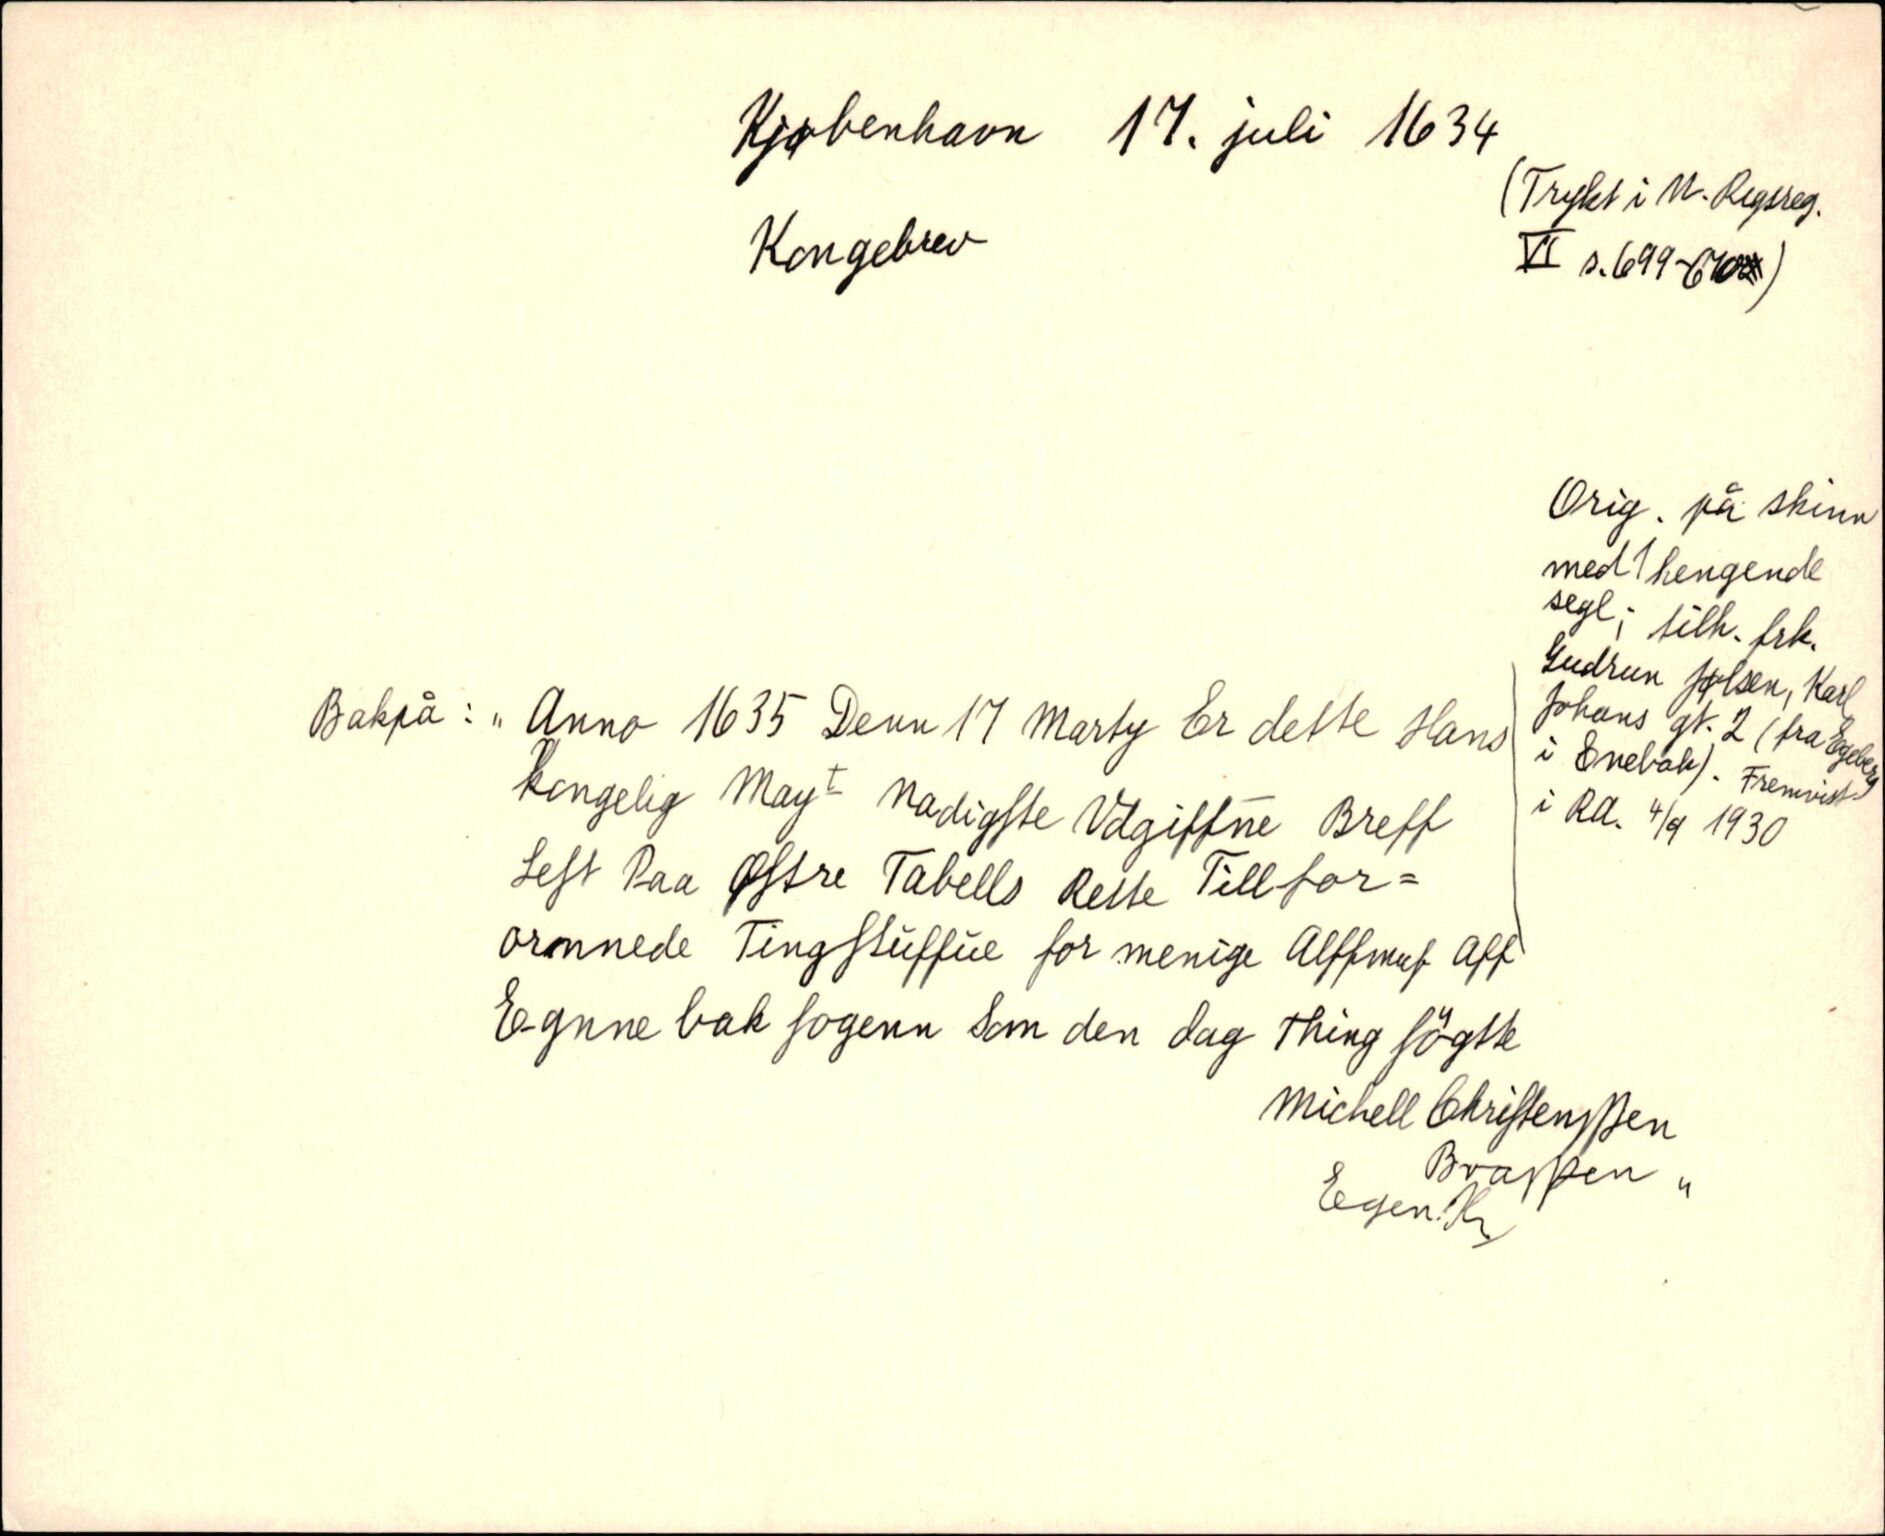 Kjøbenhavn 17. juli 1634
(Trykt i N. Rigsreg.
VI s. 699-670)
Kongebrev
Orig. på skinn
med 1 hengende
segl; tilh. frk.
Gudrun Jølsen, Karl
Johans gt. 2 (fra Egeberg
i Enebak). Fremvist
i RA. 4/9 1930
Bakpå: "Anno 1635 Denn 17 Marty Er dette Hans
kongelig Mayt Nadigste Vdgiffne Breff
Lest Paa Østre Tabells Rette Till for=
ornnede Tingstüffüe for menige Allfmuf Aff
Egnne bak sogenn Som den dag Thing sögtte
Michell Christensßen
Brasßen "
Egen. Hr